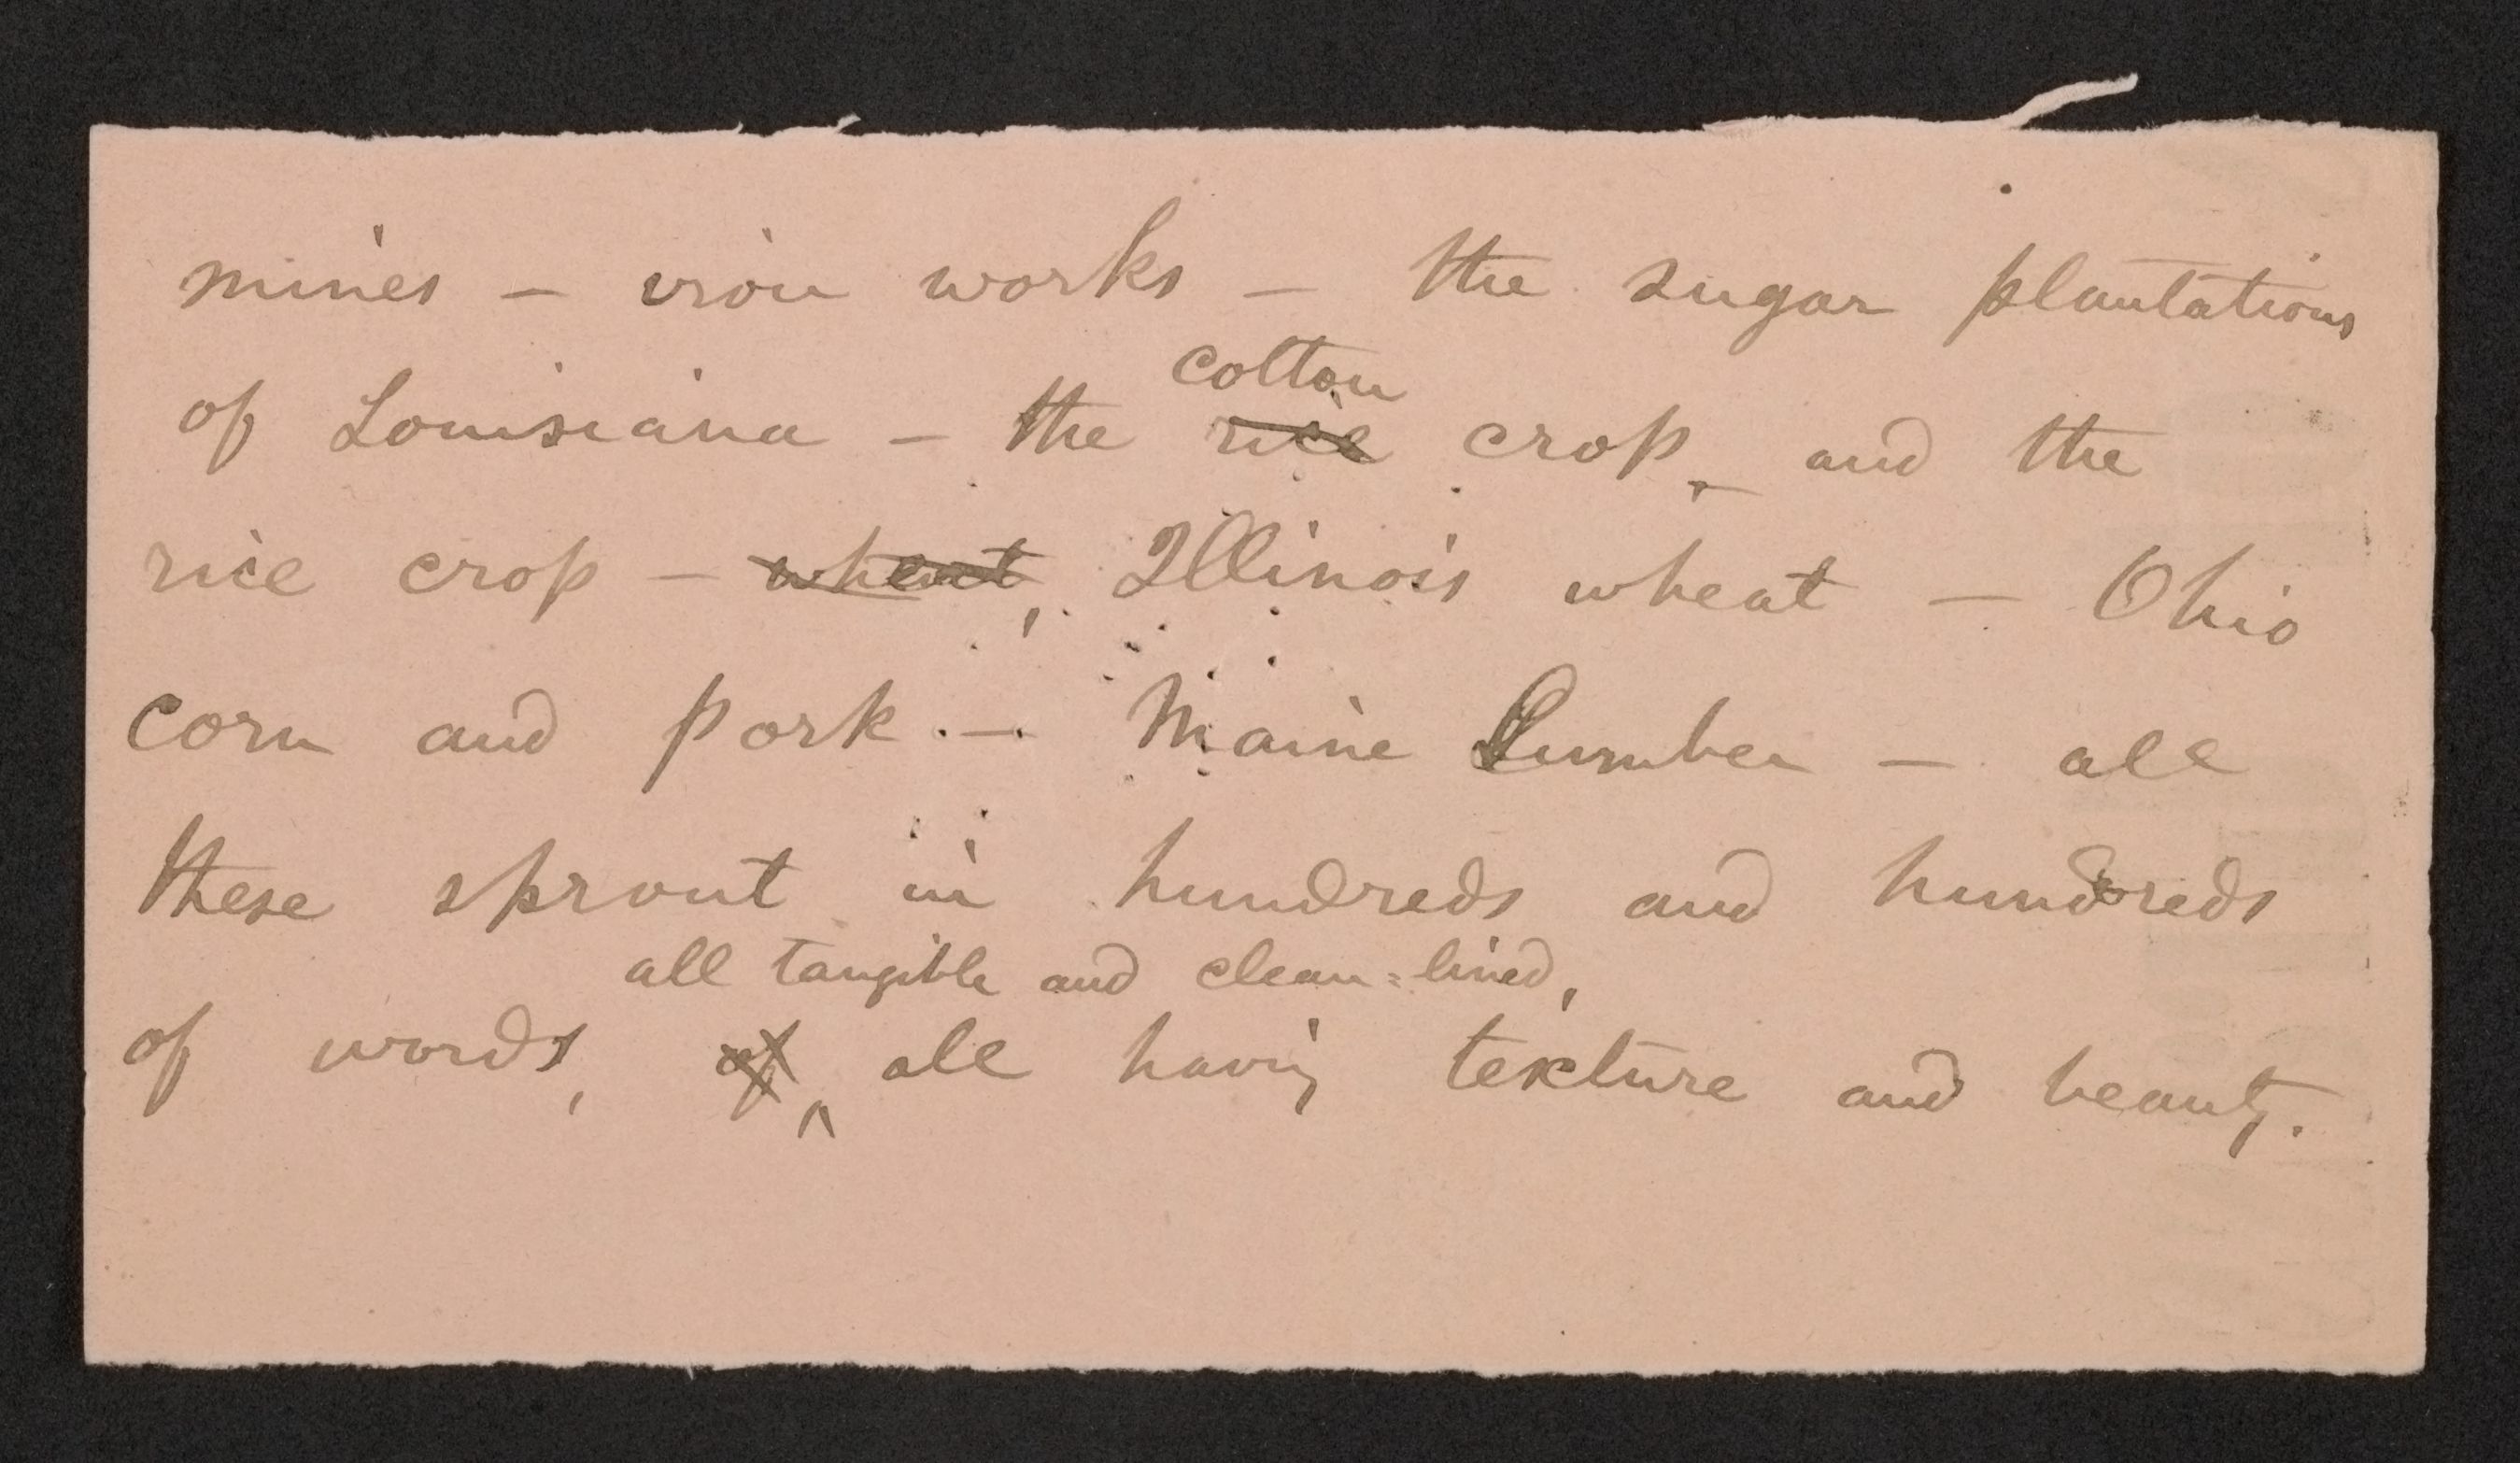 mines — iron works — the sugar plantations
of Louisiana — the rice crop — and the
cotton
rice crop — wheat, Illinois wheat — Ohio
corn and pork — Maine lumber — all
these sprout in hundreds and hundreds
all tangible and clean-lined,
of words, of ^ all having texture and beauty.